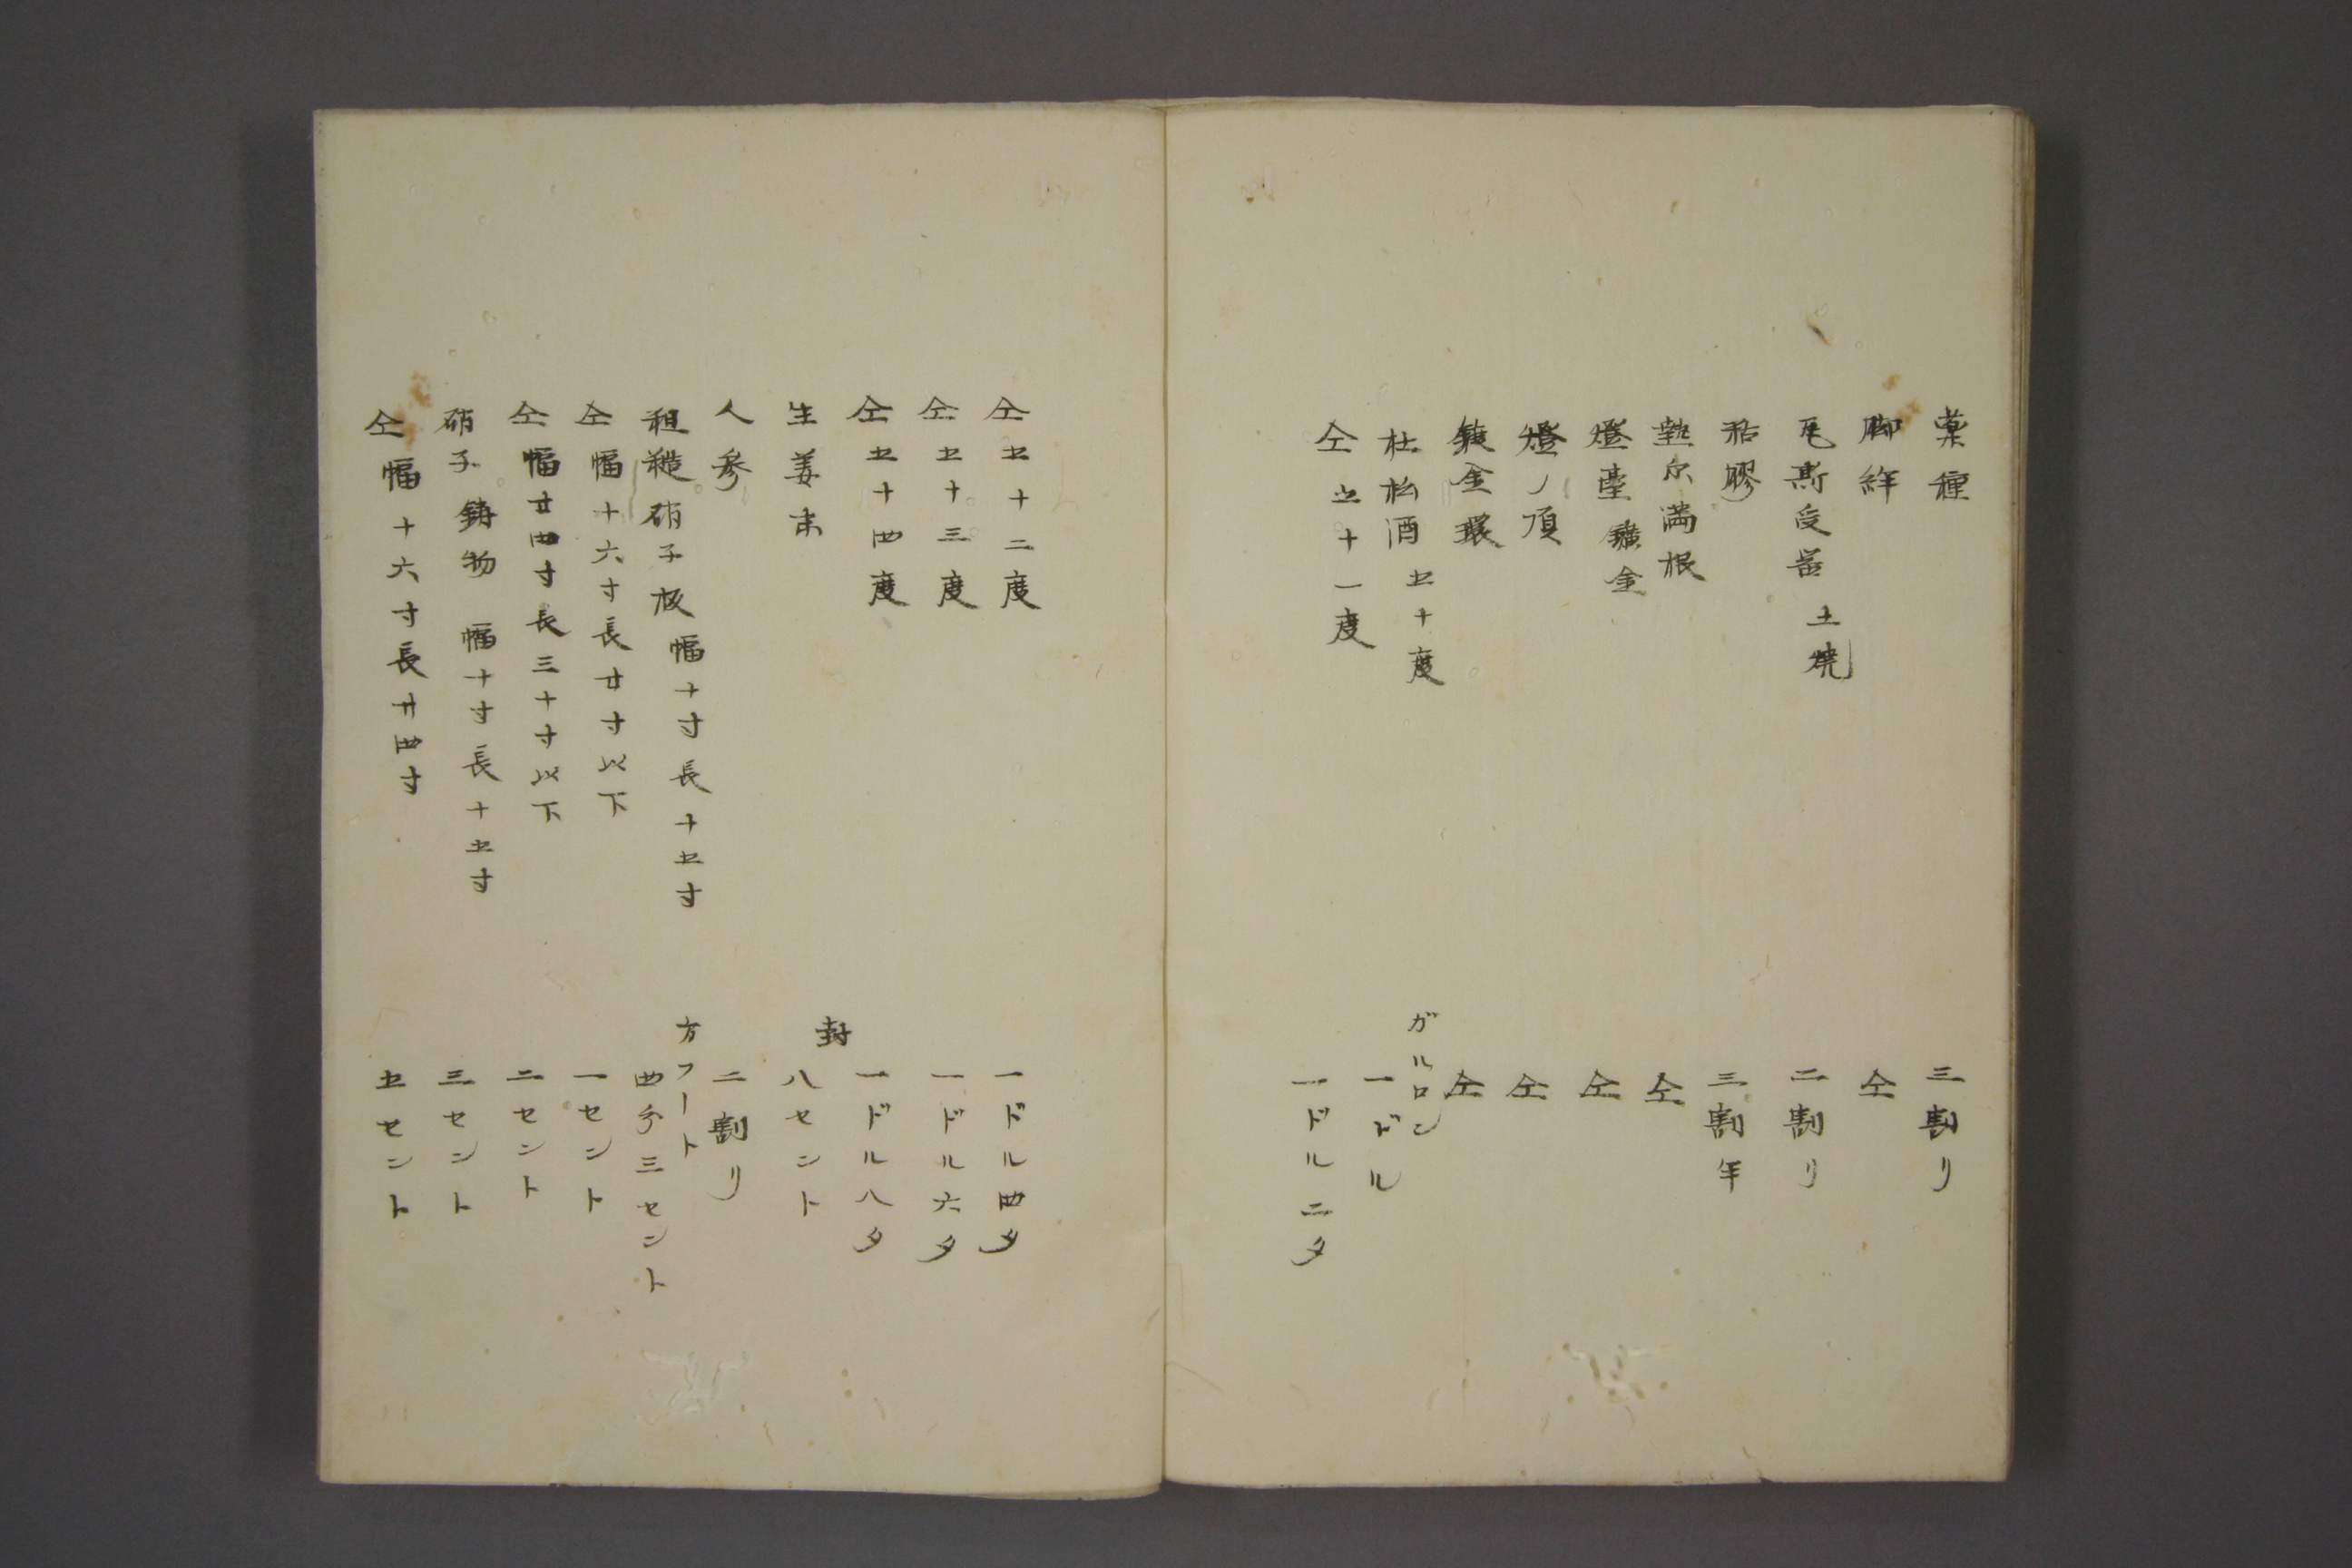 菓種 三割リ
脚絆 仝
瓦斯受器 土焼 二割リ
粘膠 三割半
熱尓満根 仝
燈臺 鑛金 仝
燈ノ頂 仝
鍍金環 仝
杜松酒 五十度 ガルロン 一ドル
仝 五十一度 一ドル二タ
仝 五十二度 一ドル四タ
仝 五十三度 一ドル六タ
仝 五十四度 一ドル八タ
生姜末 封 八セント
人参 二割リ
粗糙硝子板 幅十寸長十五寸 方フート 四分三セント
仝 幅十六寸長廿寸以下 一セント
仝 幅廿四寸長三十寸以下 二セント
硝子鋳物 幅十寸長十五寸 三セント
仝 幅十六寸長廿四寸 五セント